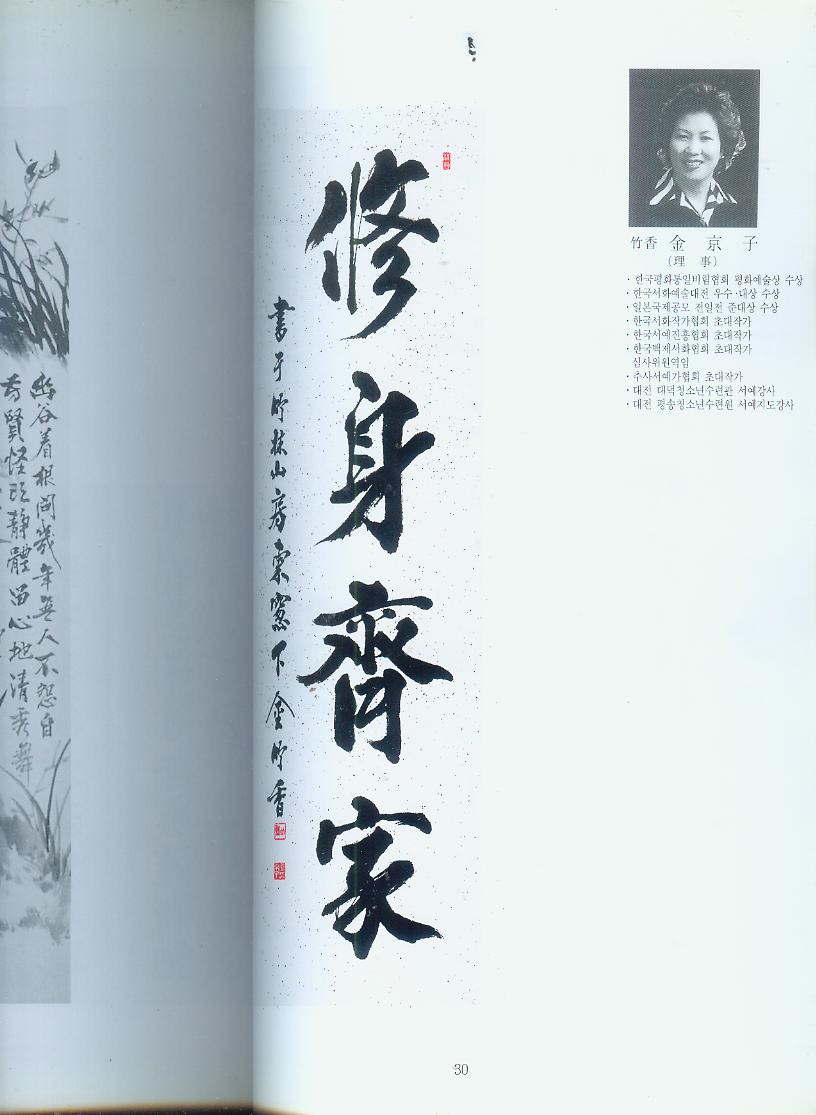 幽谷着根問幾年無人不怨自
静體留心地清香
修身齊家
書于竹林山房東窓下金竹香
竹香 金京子
(理 事)
· 한국평화통일비림협회 평화예술상 수상
· 한국서화예술대전 우수·대상 수상
· 일본국제공모 전일전 준대상 수상
· 한국서화작가협회 초대작가
· 한국서예진흥협회 초대작가
· 한국백제서화협회 초대작가
심사위원역임
· 추사서예가협회 초대작가
· 대전 대덕청소년수련관 서예강사
· 대전 평송청소년수련원 서예지도강사
30